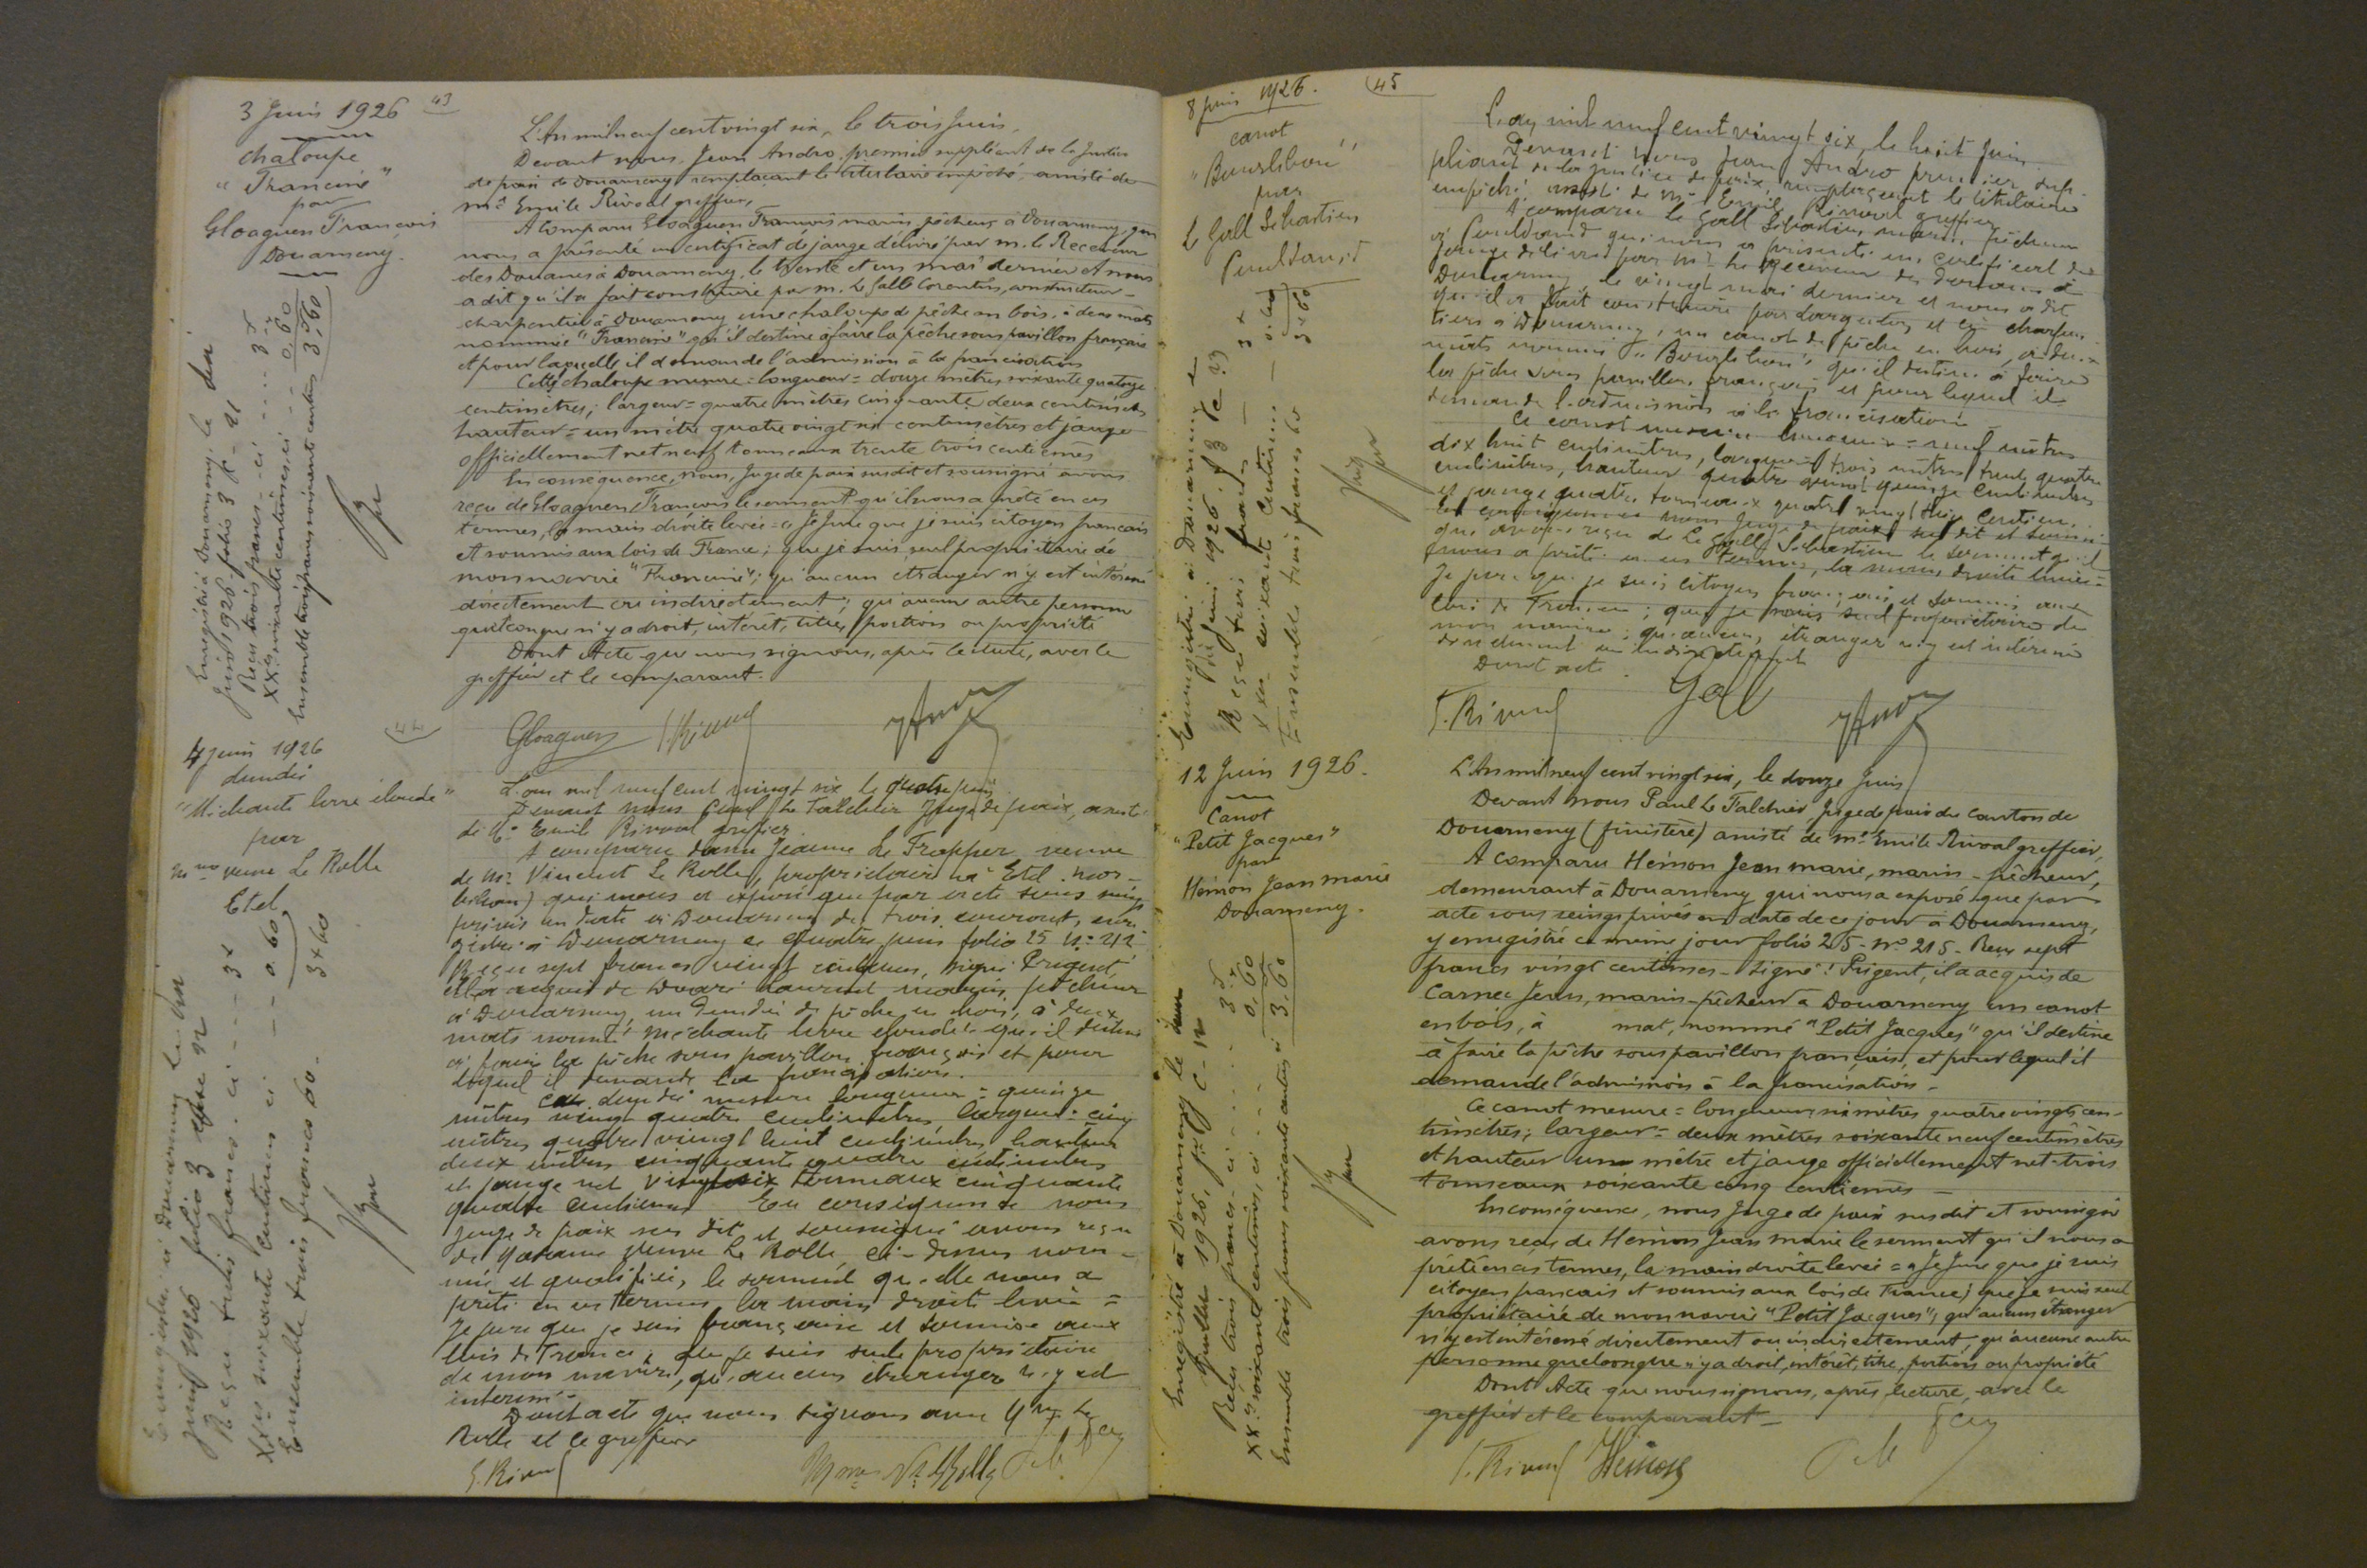 3 Juin 1926
43
chaloupe
"Francine"
par
Gloaguen François
Douarnenez.
Enregistré à Douarnenez, le dix
Juin 1926 folio 3 Ce 21
Reçu trois francs - ci .... 3 x
XXes soixante centimes, ci ... 0,60
Ensemble trois francs soixante centimes 3,60
L'An mil neuf cent vingt six, le trois Juin,
Devant nous, Jean Andro, premier suppléant de la Justice
de paix de Douarnenez remplaçant le titulaire empêché, assisté de
Me Emile Rivoal greffier,
A Comparu Gloaguen François marin pêcheur à Douarnenez, qui
nous a présenté un certificat de jauge délivré par M. le Receveur
des Douanes à Douarnenez, le trente et un mai dernier et nous
a dit qu'il a fait construire par M. Le Gall Corentin, constructeur -
charpentier à Douarnenez une chaloupe de pêche en bois, à deux mâts
nommée "Francine" qu'il destine à faire la pêche sous pavillon français
et pour laquelle il demande l'admission à la francisation
Cette chaloupe mesure = longueur = douze mètres soixante quatorze
centimètres; largeur = quatre mètres cinquante deux centimètres
hauteur = un mètre quatre vingt six centimètres et jauge
officiellement net neuf tonneaux trente trois centièmes
En conséquence, nous, Juge de paix susdit et soussigné avons
reçu de Gloaguen François le serment qu'il nous a prêté en ces
termes, la main droite levée = "Je Jure que je suis citoyen français
et soumis aux lois de France; que je suis seul propriétaire de
mon navire "Francine"; qu'aucun étranger n'y est intéressé
directement ou indirectement; qu'aucune autre personne
quelconque n'y a droit, intérêt, titre, portion ou propriété
Dont Acte que nous signons, après lecture, avec le
greffier et le comparant.
Gloaguen E. Rivoal
44
4 juin 1926
dundée
"Méchante livre élondé"
par
Mme veuve Le Rolle
Etel
Enregistré à Douarnenez le dix
juin 1926 folio 3 case 22
Reçu trois francs - ci --- 3 x
XXes soixante centimes ci -- 0.60
Ensemble trois francs 60. 3 x 60
L'an mil neuf cent vingt six le quatre juin
Devant nous Paul Le Falchier Juge de paix, assisté
de Me Emile Rivoal greffier
A comparu dame Jeanne Le Frapper veuve
de Mr. Vincent Le Rolle, propriétaire à Etel (Mor-
bihan) qui nous a exposé que par acte sous seings
privés en date à Douarnenez du trois courant, enre-
gistré à Douarnenez ce quatre juin folio 25 No 212
Reçu sept francs vingt centimes, signé Prigent,
elle a acquis de Laurent marin pêcheur
à Douarnenez, un dundée de pêche en bois, à deux
mâts nommé qu'il destine
à faire la pêche sous pavillon français et pour
lequel il demande la francisation.
Ce dundée mesure longueur = quinze
mètres vingt quatre centimètres largeur = cinq
mètres quatre vingt huit centimètres hauteur
deux mètres cinquante quatre centimètres
et jauge net vingt six tonneaux cinquante
quatre centièmes En conséquence nous
juge de paix sus dit et soussigné avons reçu
de Madame veuve Le Rolle, ci-dessus nom-
mée et qualifiée, le serment qu'elle nous a
prêté en ces termes la main droite levée =
Je jure que je suis française et soumise aux
lois de France; que je suis seule propriétaire
de mon navire, qu'aucun étranger n'y est
intéressé
Dont acte que nous signons avec Mme Le
Rolle et le greffier
E. Rivoal Mme Ve Le Rolle
8 juin 1926.
45
canot
par
Le Gall Sébastien
Pouldavid
Enregistré à Douarnenez le
dix juin 1926. f 3 Ce 23
Reçu trois francs — 3 x
XXes soixante centimes — 0.60
Ensemble trois francs 60 3 x 60
L'an mil neuf cent vingt six, le huit Juin
Devant nous Jean Andro premier sup-
pléant de la justice de paix, remplaçant le titulaire
empêché, assisté de Me Emile Rivoal greffier
A comparu Le Gall Sébastien marin pêcheur
à Pouldavid qui nous a présenté un certificat de
jauge délivré par Mr le Receveur des douanes à
Douarnenez le vingt mai dernier et nous a dit
qu'il a fait construire par et Cie charpen-
tiers à Douarnenez, un canot de pêche en bois, à deux
mâts nommé qu'il destine à faire
la pêche sous pavillon français et pour lequel il
demande l'admission à la francisation
Ce canot mesure longueur = neuf mètres
dix huit centimètres, largeur trois mètres trente quatre
centimètres, hauteur quatre vingt quinze centimètres
et jauge quatre tonneaux quatre vingt centièm.
En conséquence nous juge de paix sus dit et soussi-
gné avons reçu de Le Gall Sébastien le serment qu'il
nous a prêté en ces termes, la main droite levée =
Je jure que je suis citoyen français et soumis aux
lois de France; que je suis seul propriétaire de
mon navire; qu'aucun étranger n'y est intéressé
directement ou indirectement
Dont acte.
E. Rivoal Gall
12 Juin 1926.
Canot
"Petit Jacques"
par
Hémon Jean marie
Douarnenez.
Enregistré à Douarnenez le
Juillet 1926, C - 12
Reçu trois francs - ci ...... 3 x
XXes soixante centimes, ci .... 0,60
Ensemble trois francs soixante centimes ci 3,60
L'An mil neuf cent vingt six, le douze Juin
Devant nous Paul Le Falchier Juge de paix du canton de
Douarnenez (finistère) assisté de Me Emile Rivoal greffier,
A Comparu Hémon Jean marie, marin-pêcheur,
demeurant à Douarnenez qui nous a exposé que par
acte sous seings privés en date de ce jour à Douarnenez,
y enregistré ce même jour folio 25 - No 215 - Reçu sept
francs vingt centimes - Signé: Prigent, il a acquis de
Carnec Jean, marin-pêcheur à Douarnenez un canot
en bois, à mat, nommé "Petit Jacques" qu'il destine
à faire la pêche sous pavillon français, et pour lequel il
demande l'admission à la francisation -
Ce canot mesure = longueur six mètres quatre vingts cen-
timètres; largeur = deux mètres soixante neuf centimètres
et hauteur un mètre et jauge officiellement net - trois
tonneaux soixante cinq centièmes -
En conséquence, nous Juge de paix susdit et soussigné
avons reçu de Hémon Jean marie le serment qu'il nous a
prêté en ces termes, la main droite levée = "Je Jure que je suis
citoyen français et soumis aux lois de France; que je suis seul
propriétaire de mon navire "Petit Jacques"; qu'aucun étranger
n'y est intéressé directement ou indirectement, qu'aucune autre
personne quelconque n'y a droit, intérêt, titre, portion ou propriété
Dont Acte que nous signons, après lecture, avec le
greffier et le comparant -
E. Rivoal Hémon